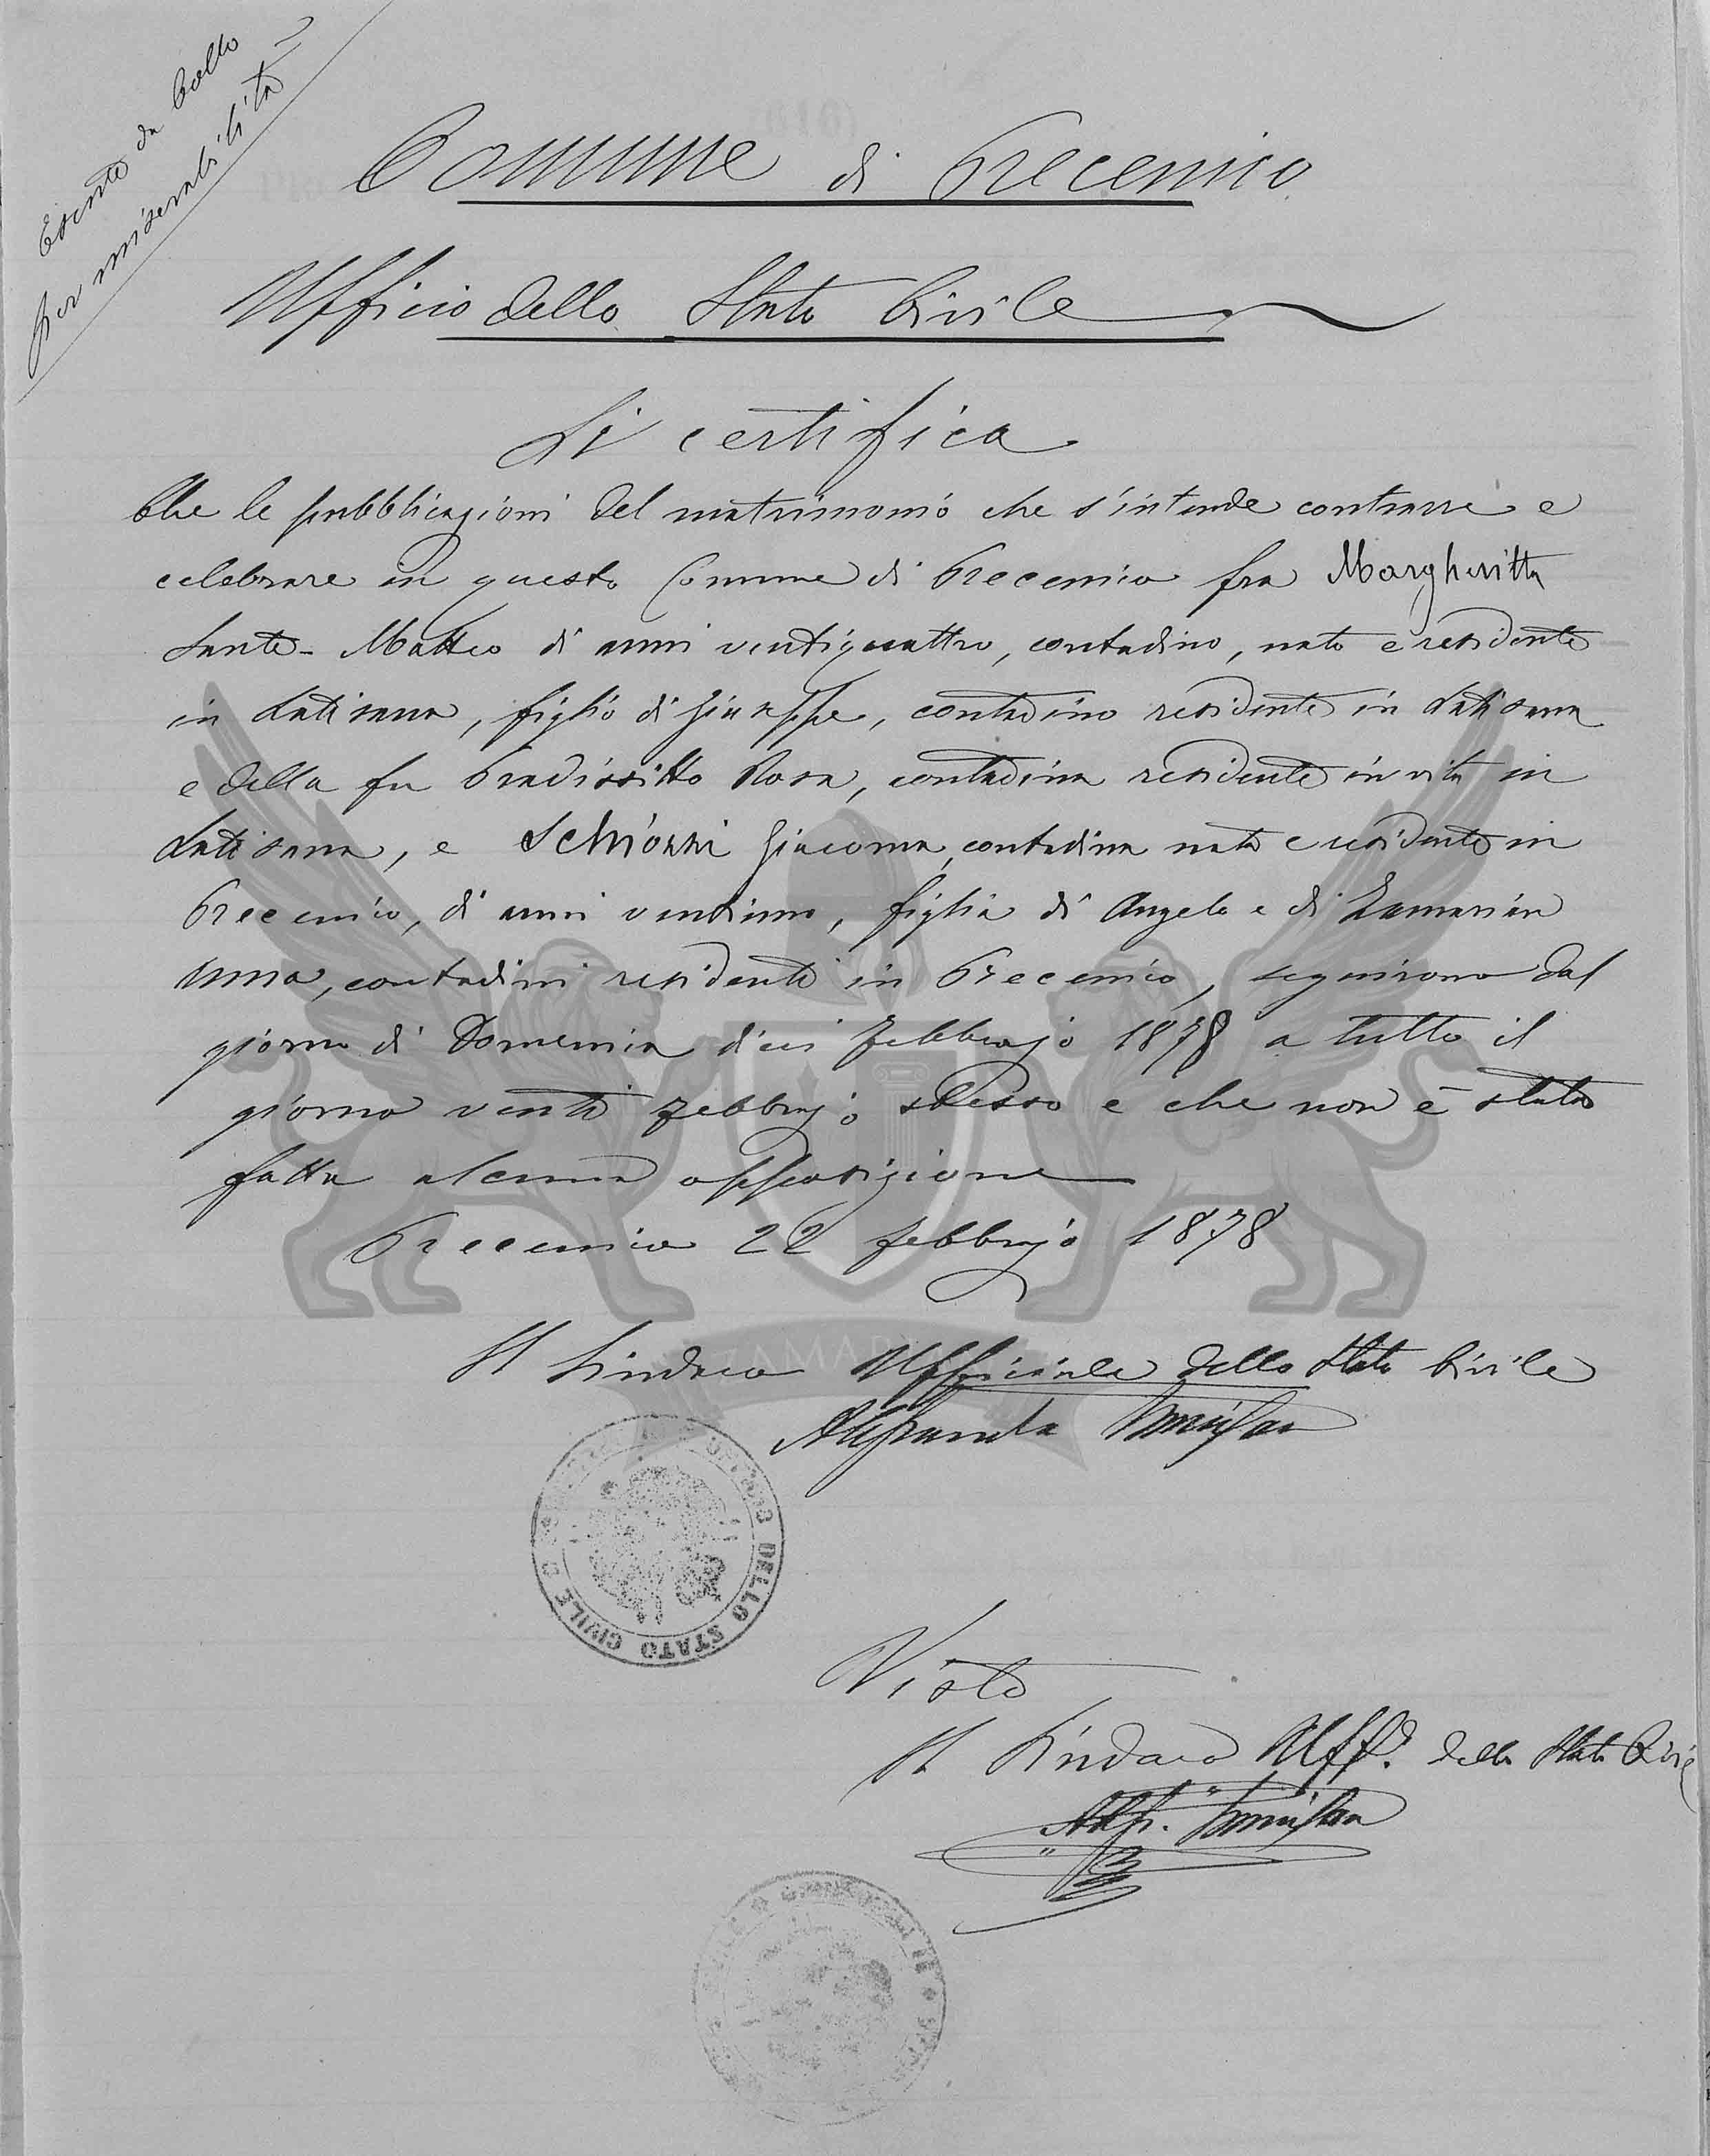 Esente da bollo
per miserabilità
Comune di Precenico
Ufficio dello Stato Civile
Si certifica
Che le pubblicazioni del matrimonio che s'intende contrarre e
celebrare in questo Comune di Precenico fra Margheritta
Sante-Matteo di anni ventiquattro, contadino, nato e residente
in Latisana, figlio di Giuseppe, contadino residente in Latisana
e della fu Pradissitto Rosa, contadina residente in vita in
Latisana, e Schiozzi Giacoma, contadina nata e residente in
Precenico, di anni ventuno, figlia di Angelo e di Zamarian
Anna, contadini residenti in Precenico, seguirono dal
giorno di Domenica dieci Febbrajo 1878 a tutto il
giorno venti Febbrajo stesso e che non è stata
fatta alcuna opposizione
Precenico 22 febbrajo 1878
Il Sindaco Ufficiale dello Stato Civile
AMAR
UFFICIO DELLO STATO CIVILE
Visto
Il Sindaco Uff.e dello Stato Civile